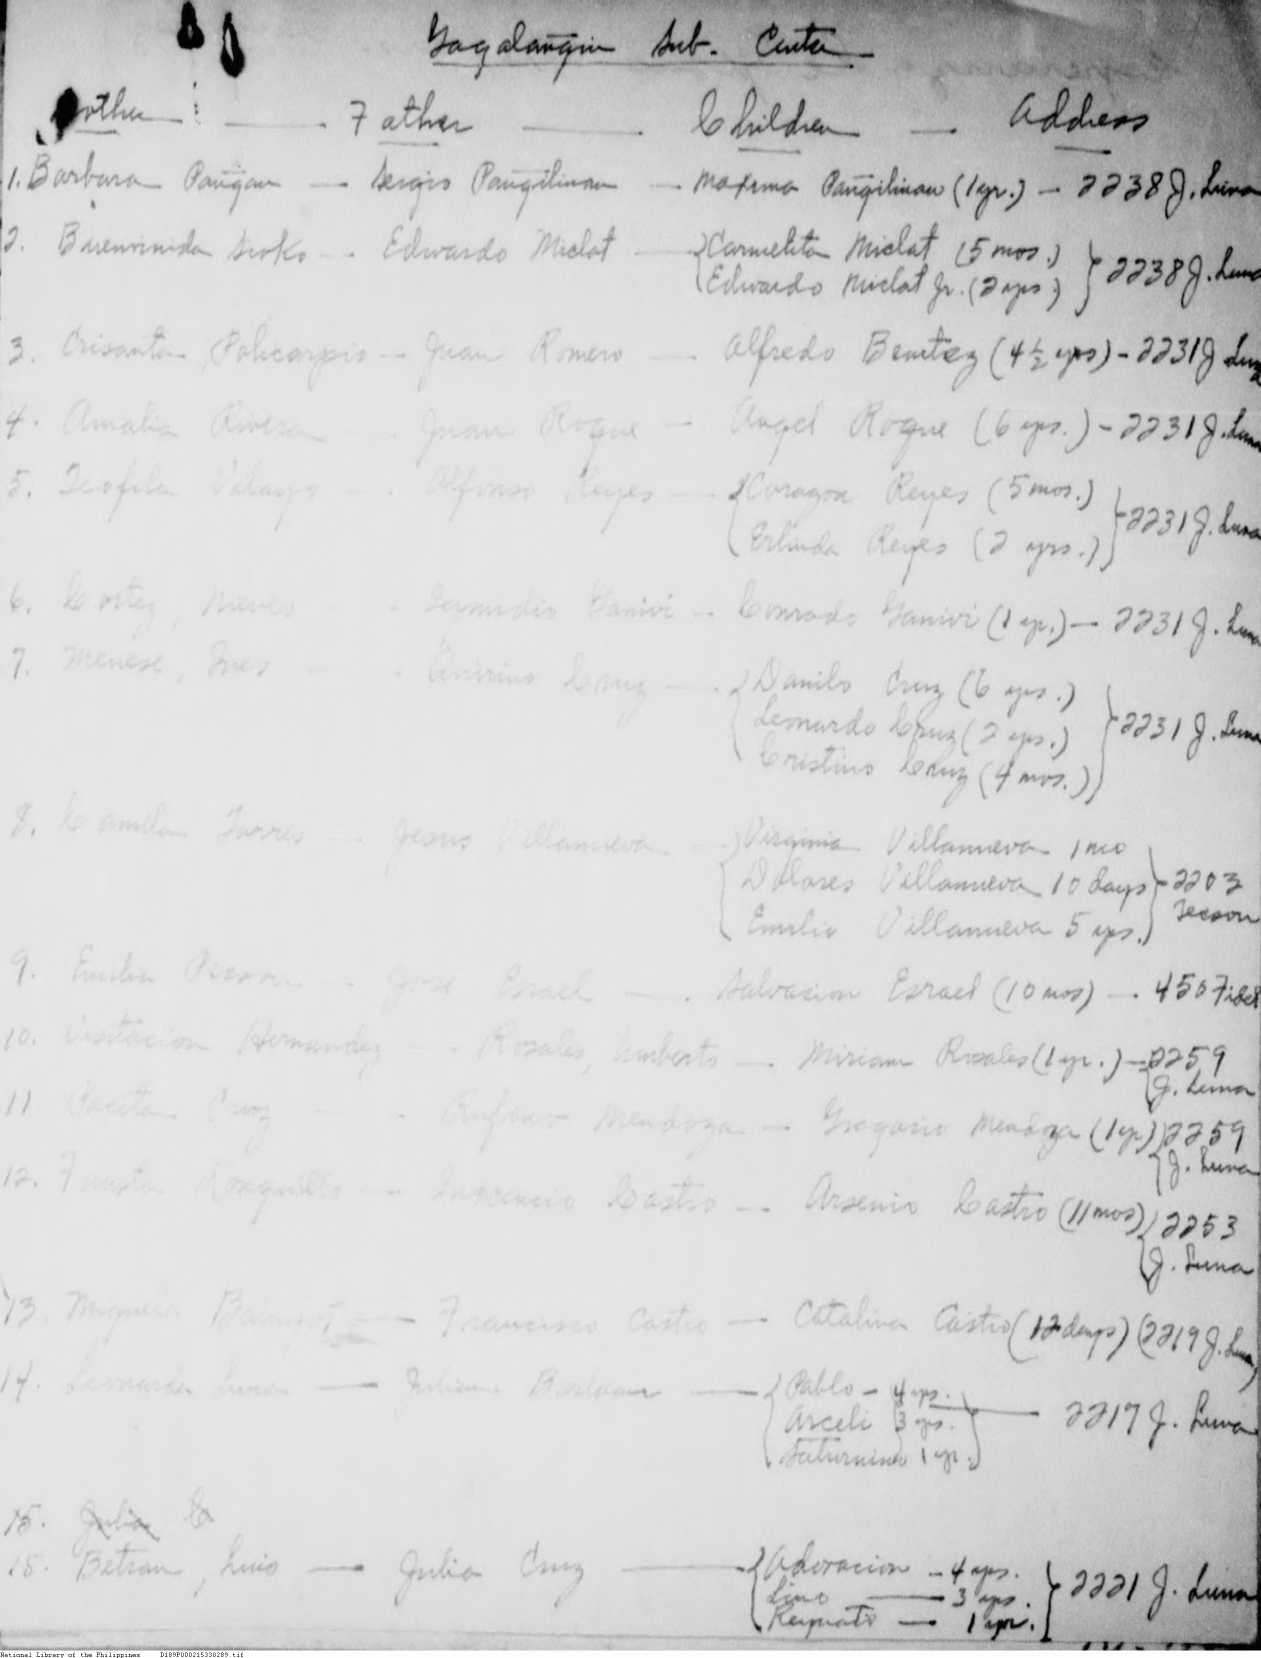 Gagalangin Sub. Center
Mother — Father — Children — Address
1. Barbara Pangan — Sergio Pangilinan — Maxima Pangilinan (1 yr.) — 2238 J. Luna
2. Buenvinida Sioko — Edwardo Miclat — Carmelita Miclat (5 mos.)
Edwardo Miclat Jr. (2 yrs.) 2238 J. Luna
3. Crisanta Policarpio — Juan Romero — Alfredo Benitez (4 1/2 yrs) - 2231 J Luna
4. Amalia Rivera — Juan Roque — Angel Roque (6 yrs.) - 2231 J. Luna
5. Teofila Velayo — Alfonso Reyes — Corazon Reyes (5 mos.)
Erlinda Reyes (2 yrs.) - 2231 J. Luna
6. Cortez, Nieves — Ganivi — Conrado Ganivi (1 yr.) — 2231 J. Luna
7. Menese, Ines — Quirino Cruz — Danilo Cruz (6 yrs.)
Leonardo Cruz (2 yrs.) - 2231 J. Luna
Cristino Cruz (4 mos.)
8. Camilla Torres — Jesus Villanueva — Virginia Villanueva 1 mo
Dolores Villanueva 10 days - 2203
Emilio Villanueva 5 yrs. Tecson
9. Emilia — Jose Esrael — Salvacion Esrael (10 mos) — 450 Fidel
10. Visitacion Hernandez — Rosales, Umberto — Miriam Rosales (1 yr.) — 2259
J. Luna
11 Paceta Cruz — Rufino Mendoza — Gregorio Mendoza (1 yr) 2259
J. Luna
12. Fausta Ronquillo — Inocencio Castro — Arsenio Castro (11 mos) 2253
J. Luna
13. Miguela — Francisco Castro — Catalina Castro (12 days) (2219 J. Luna)
14. Leonarda Luna — Juliano — Pablo - 4 yrs.
Arceli 3 yrs. — 2217 J. Luna
Saturnino 1 yr.
15. Julia C
15. Betran, Luis — Julia Cruz — Adoracion - 4 yrs.
Lino — 3 yrs. 2221 J. Luna
— 1 yr.
National Library of the Philippines D189P000215330289.tif